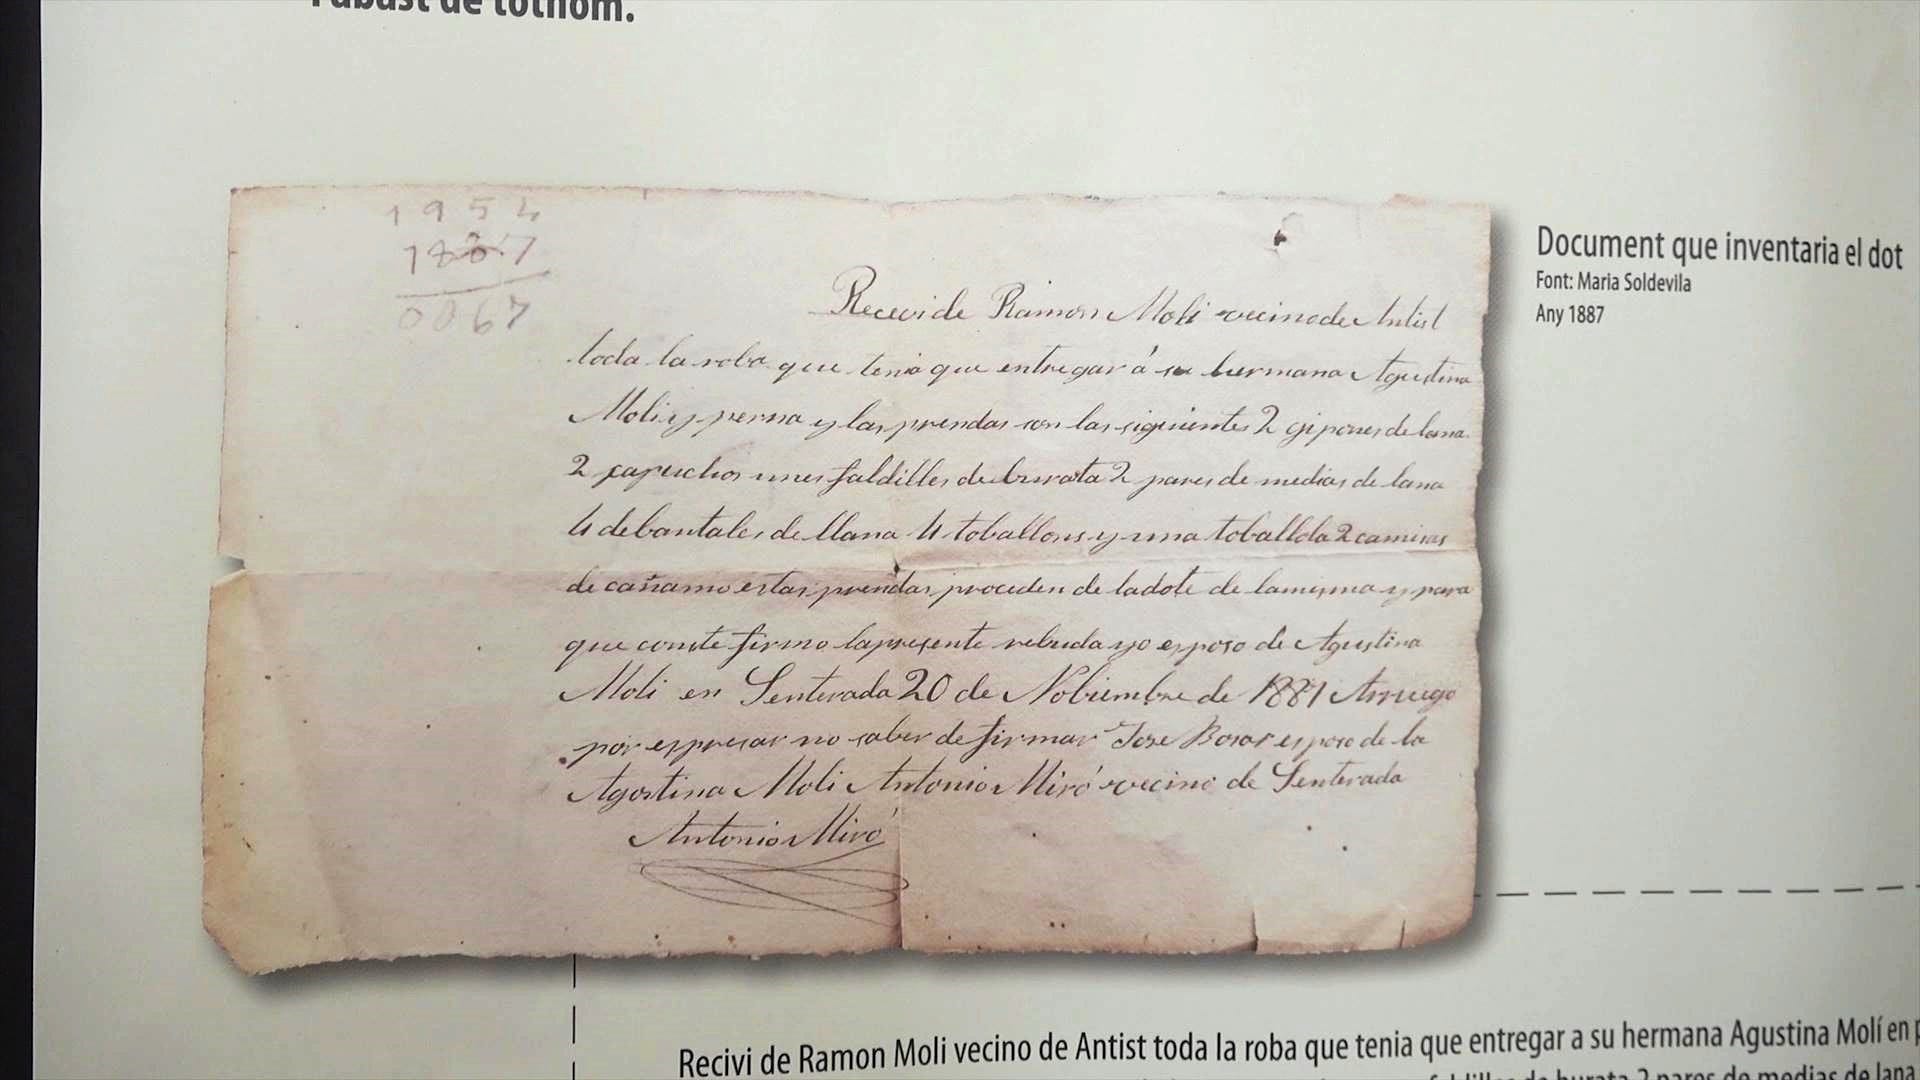 l'abast de tothom.
1954
1887
0067
Document que inventaria el dot
Font: Maria Soldevila
Any 1887
Recevi de Ramon Moli vecino de Antist
toda la roba que tenia que entregar á su hermana Agustina
Moli y perna y las prendas son las siguientes 2 gipones de lana
2 capuchos unes faldilles de burata 2 pares de medias de lana
4 debantales de llana 4 toballons y una toballola 2 camisas
de cañamo estas prendas proceden de la dote de la misma y para
que conste firmo la presente rebuda yo esposo de Agustina
Moli en Senterada 20 de Nobiembre de 1887 Arruego
por espresar no saber de firmar Jose Borar esposo de la
Agostina Moli Antonio Miró vecino de Senterada
Antonio Miró
Recivi de Ramon Moli vecino de Antist toda la roba que tenia que entregar a su hermana Agustina Molí en
faldilles de burata 2 pares de medias de lana